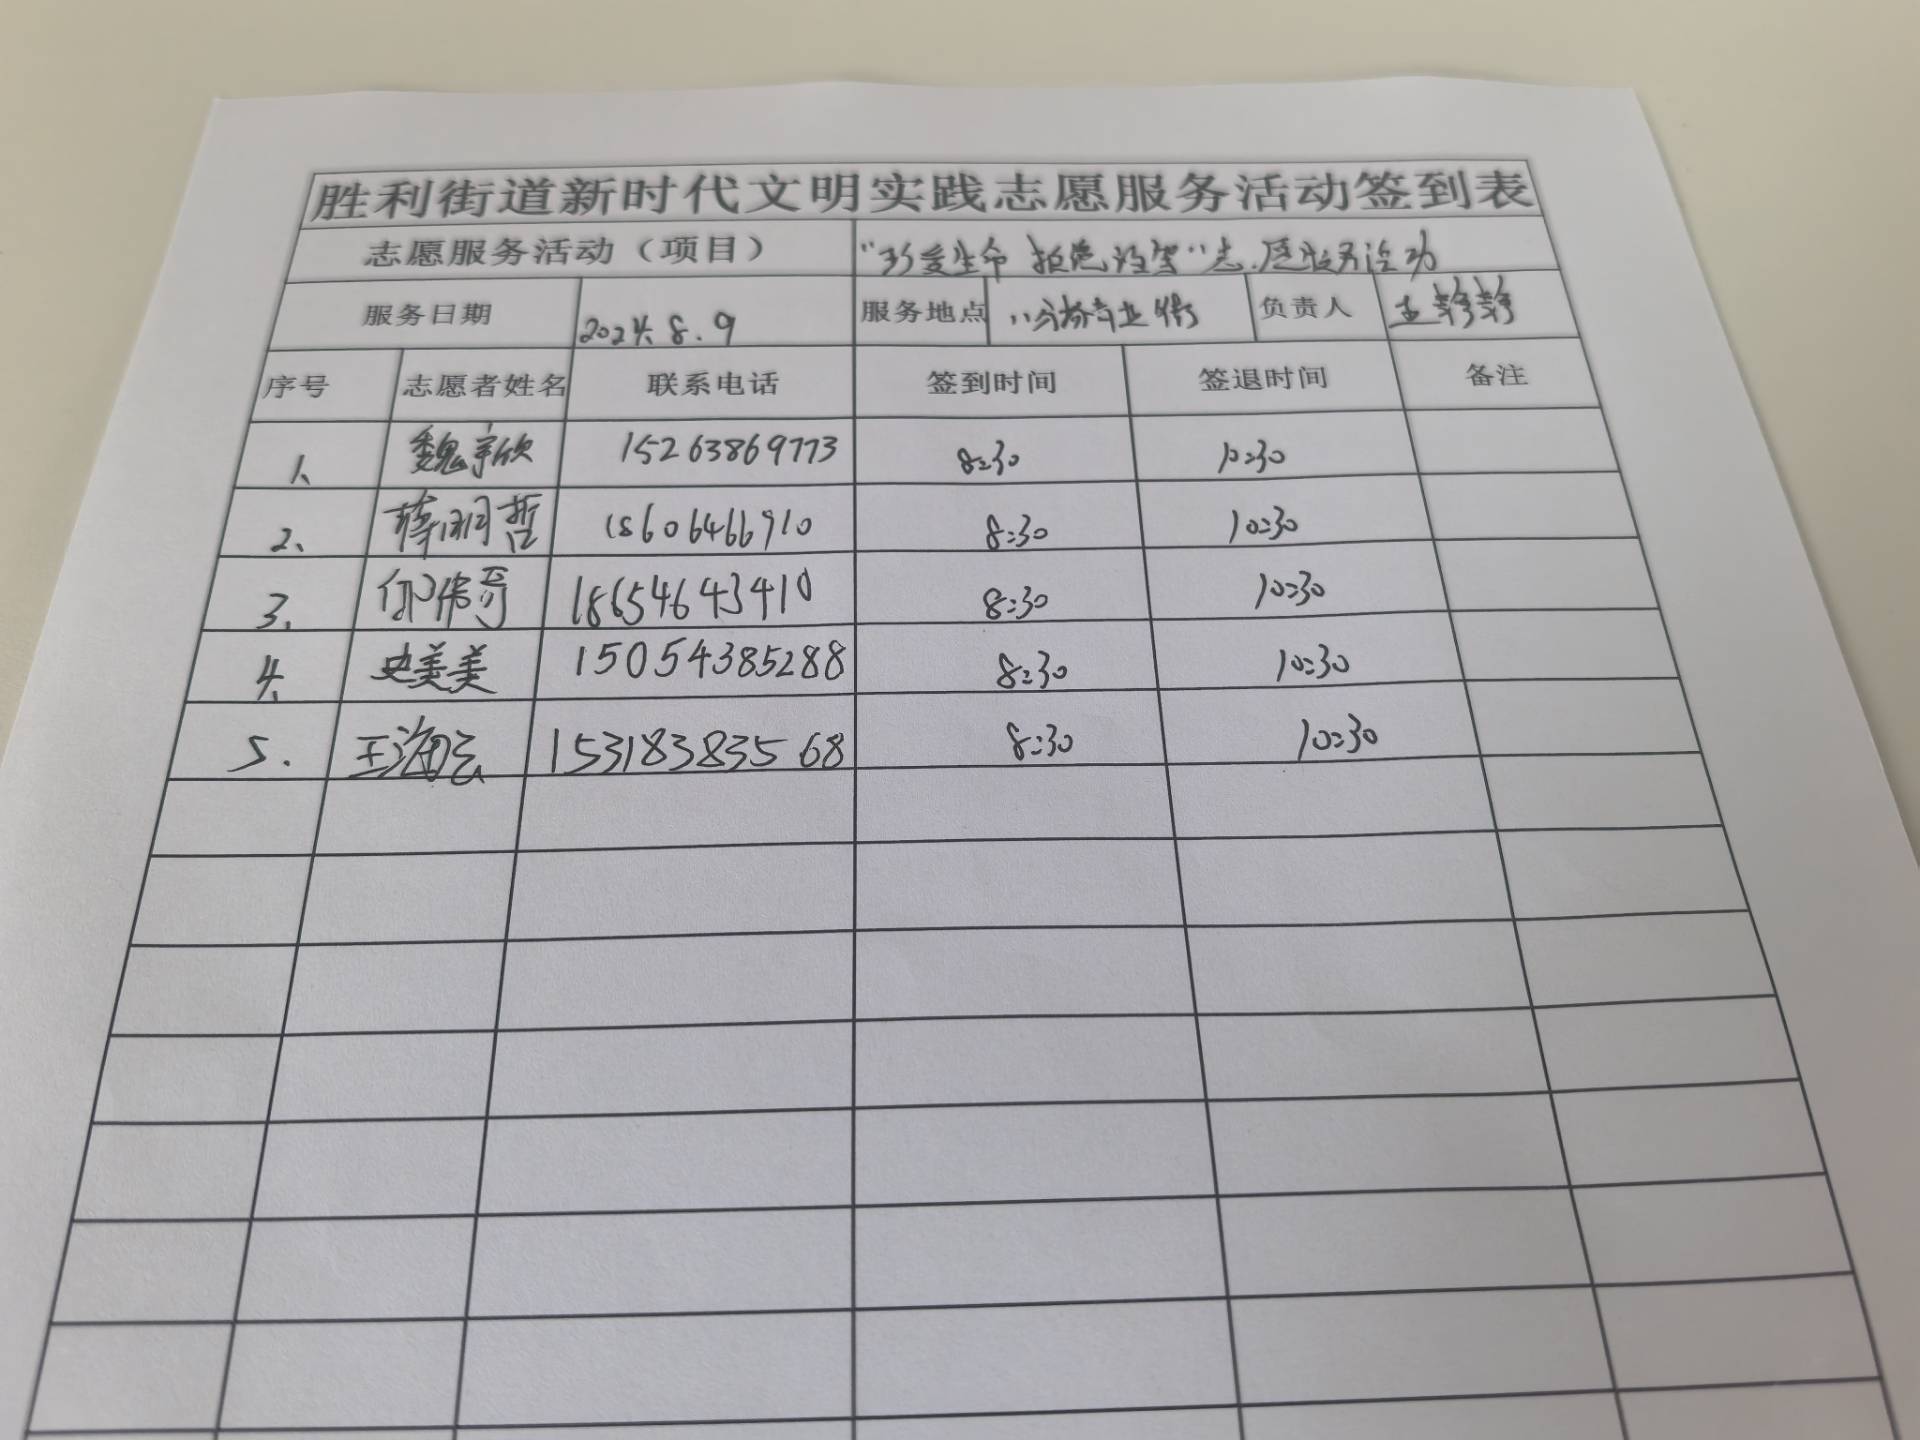 胜利街道新时代文明实践志愿服务活动签到表
志愿服务活动（项目） “珍爱生命 拒绝酒驾”志愿服务活动
服务日期 2024.8.9 服务地点 商业街 负责人 王静静
序号 志愿者姓名 联系电话 签到时间 签退时间 备注
1、 魏宇欣 15263869773 8:30 10:30
2、 薛明哲 18606466910 8:30 10:30
3. 18654643410 8:30 10:30
4. 史美美 15054385288 8:30 10:30
5. 王海云 15318383568 8:30 10:30